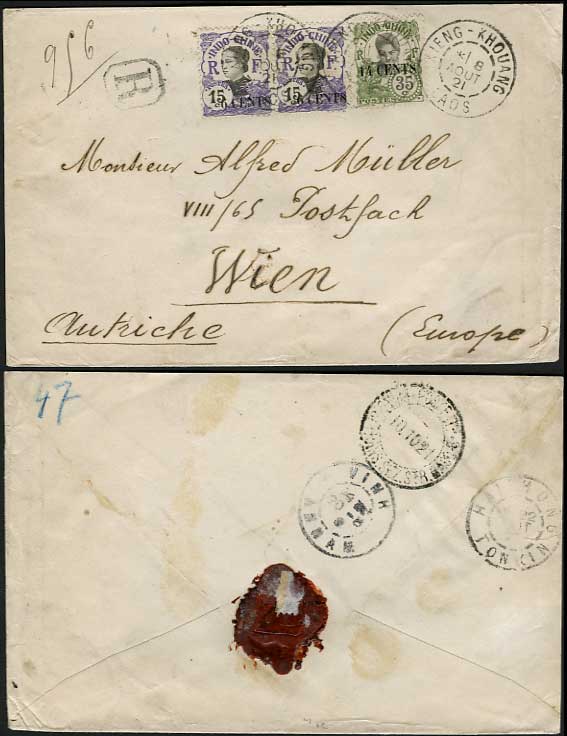 956
R
INDO-CHINE
R F
15 6 CENTS
INDO-CHINE
R F
15 6 CENTS
INDO-CHINE
R F
14 CENTS 35
POSTES
XIENG-KHOUANG
8
AOUT
21
LAOS
Monsieur Alfred Müller
VIII/65 Postfach
Wien
Autriche (Europe)
47
VINH
ANNAM
HAIPHONG
TONKIN